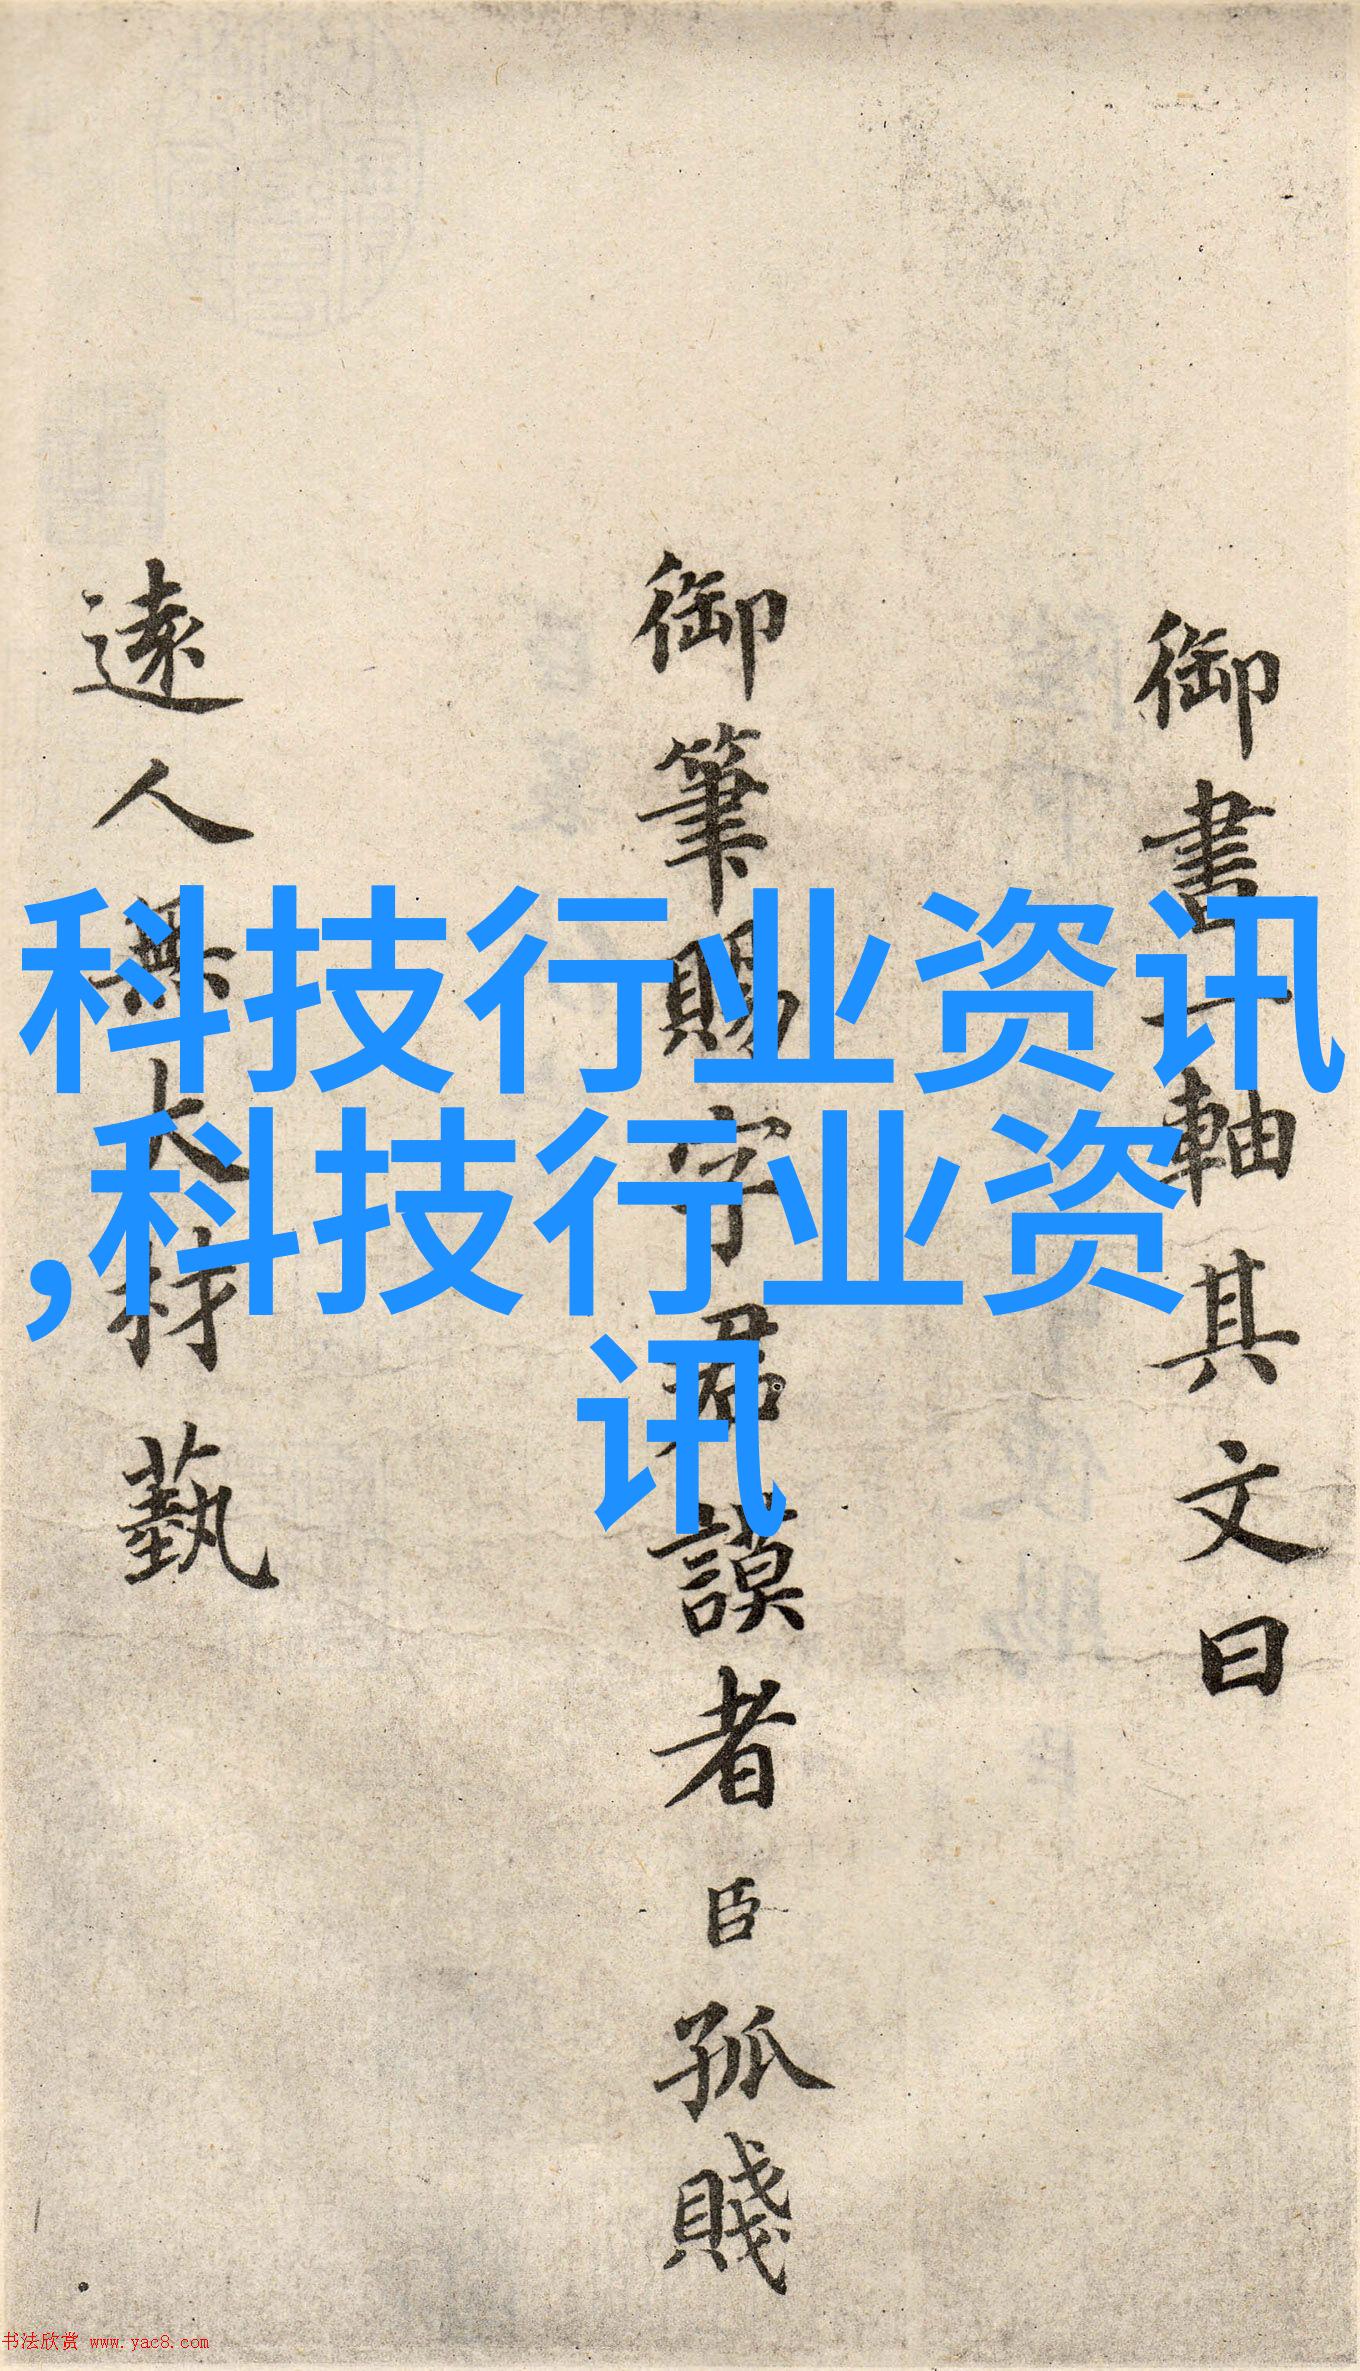 御書一軸其文曰
御筆賜字君謨者臣孤賤
遠人無大材藝
科技行业资讯
,科技行业资
讯
书法欣赏 www.yac8.com